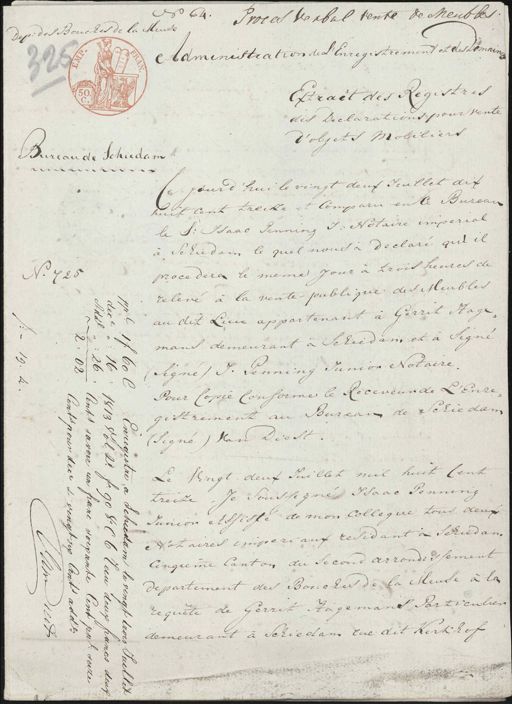 N.o 64. Procès Verbal vente de Meubles.
Dep.t des Bouches de la Meuse
326
EMP. FRAN.
50 C.
Administration de l'Enregistrement et des Domaines
Extraët des Registres
des Declarations pour vente
D'objets Mobiliers
Bureau de Schiedam
Ce jourd'hui le vingt deux Juillet dix
huit cent treize est Comparu en le Bureau
le Sr. Isaac Penning Jr. Notaire imperial
à Schiedam le quel nous a Declaré qu'il
procedera le même jour à trois heures de
relevé à la vente publique des Meubles
au dit Lieu appartenant à Gerrit Hage-
mans demeurant à Schiedam et à Signé
(Signé) I. Penning Junior Notaire.
Pour Copie Conforme le Receveur de L'Enre-
gistrement au Bureau de Schiedam
(Signé) van Diest.
N.o 725
Le Vingt deux Juillet mil huit Cent
treize Je Soussigné Isaac Penning
Junior assisté de mon Collegue tous deux
Notaires imperiaux residant à Schiedam
Cinquieme Canton du Second arrondissement
departement des Bouches de la Meuse à la
requête de Gerrit Hagemans Particulier
demeurant à Schiedam rue dit Kerkhof
Enregistré a Schiedam le vingt trois Juillet
1813